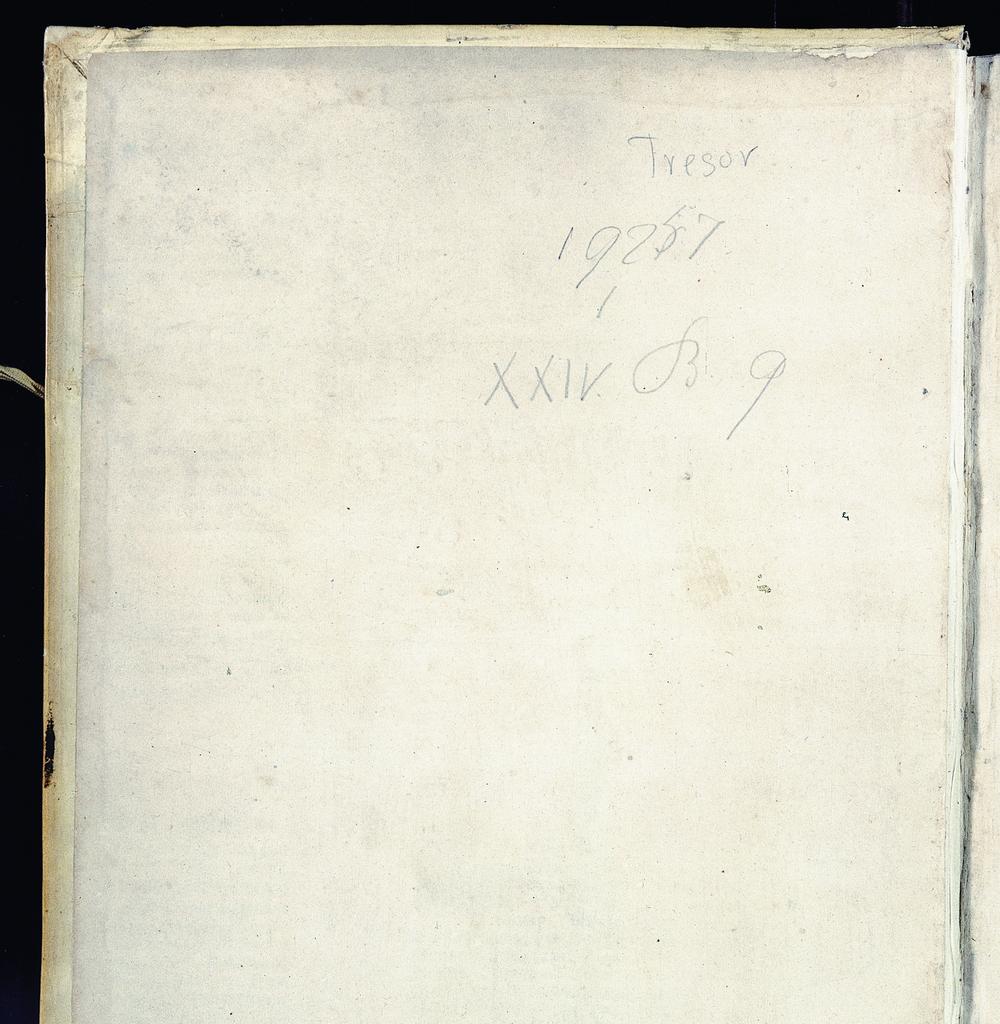 Tresor
19257
1
XXIV. B. 9